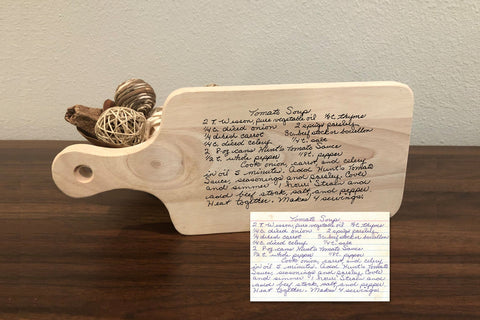 Tomato Soup
2 T. Wesson pure vegetable oil ⅛ t. thyme
¼ c. diced onion 2 sprigs parsley
¼ diced carrot 3 c. beef stock or bouillon
¼ c. diced celery ¼ t. salt
2 8 oz cans Hunt's Tomato Sauce
½ t. whole pepper ⅛ t. pepper
Cook onion, carrot, and celery
in oil 5 minutes. Add Hunt's Tomato
Sauce, seasonings and parsley. Cover
and simmer 1 hour. Strain and
add beef stock, salt, and pepper.
Heat together. Makes 4 servings.
Tomato Soup
2 T. Wesson pure vegetable oil ⅛ t. thyme
¼ c. diced onion 2 sprigs parsley
¼ diced carrot 3 c. beef stock or bouillon
¼ c. diced celery ¼ t. salt
2 8 oz cans Hunt's Tomato Sauce
½ t. whole pepper ⅛ t. pepper
Cook onion, carrot, and celery
in oil 5 minutes. Add Hunt's Tomato
Sauce, seasonings and parsley. Cover
and simmer 1 hour. Strain and
add beef stock, salt, and pepper.
Heat together. Makes 4 servings.